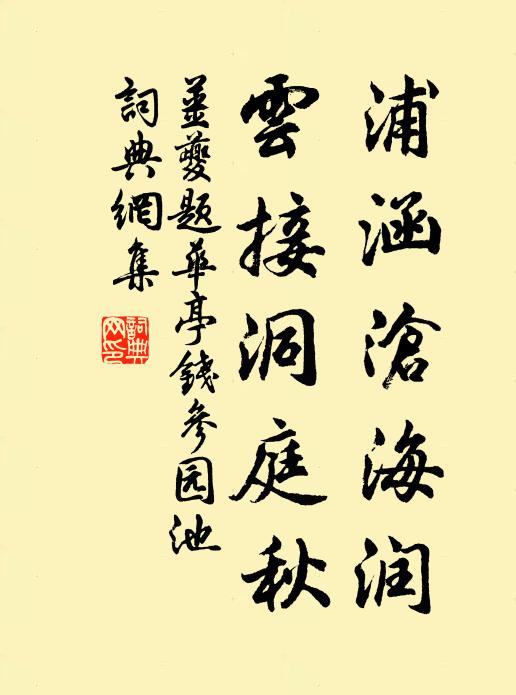 浦涵滄海润
雲接洞庭秋
薑夔题華亭錢參园池
詞典網集
詞典网印